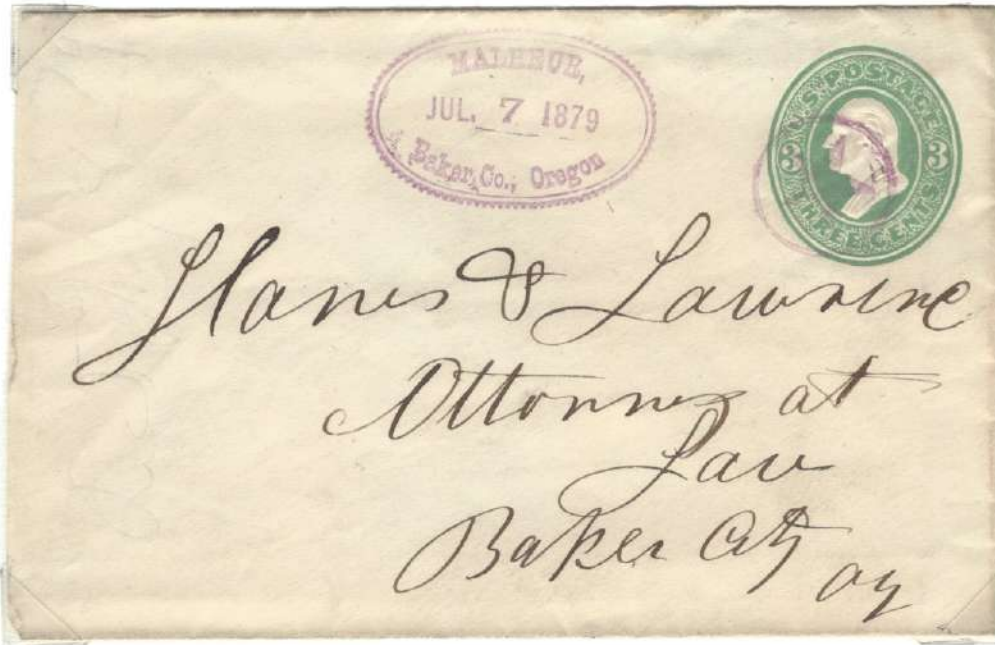 MALHEUR,
JUL. 7 1879
Baker, Co., Oregon
U.S. POSTAGE
3 3
THREE CENTS
Hanes & Lawrence
Attorney at
Law
Baker City
og